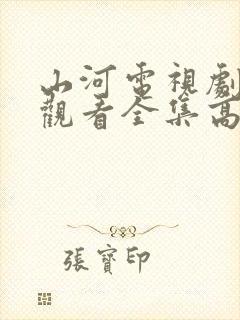 山河電視劇
觀看全集高
張寶印